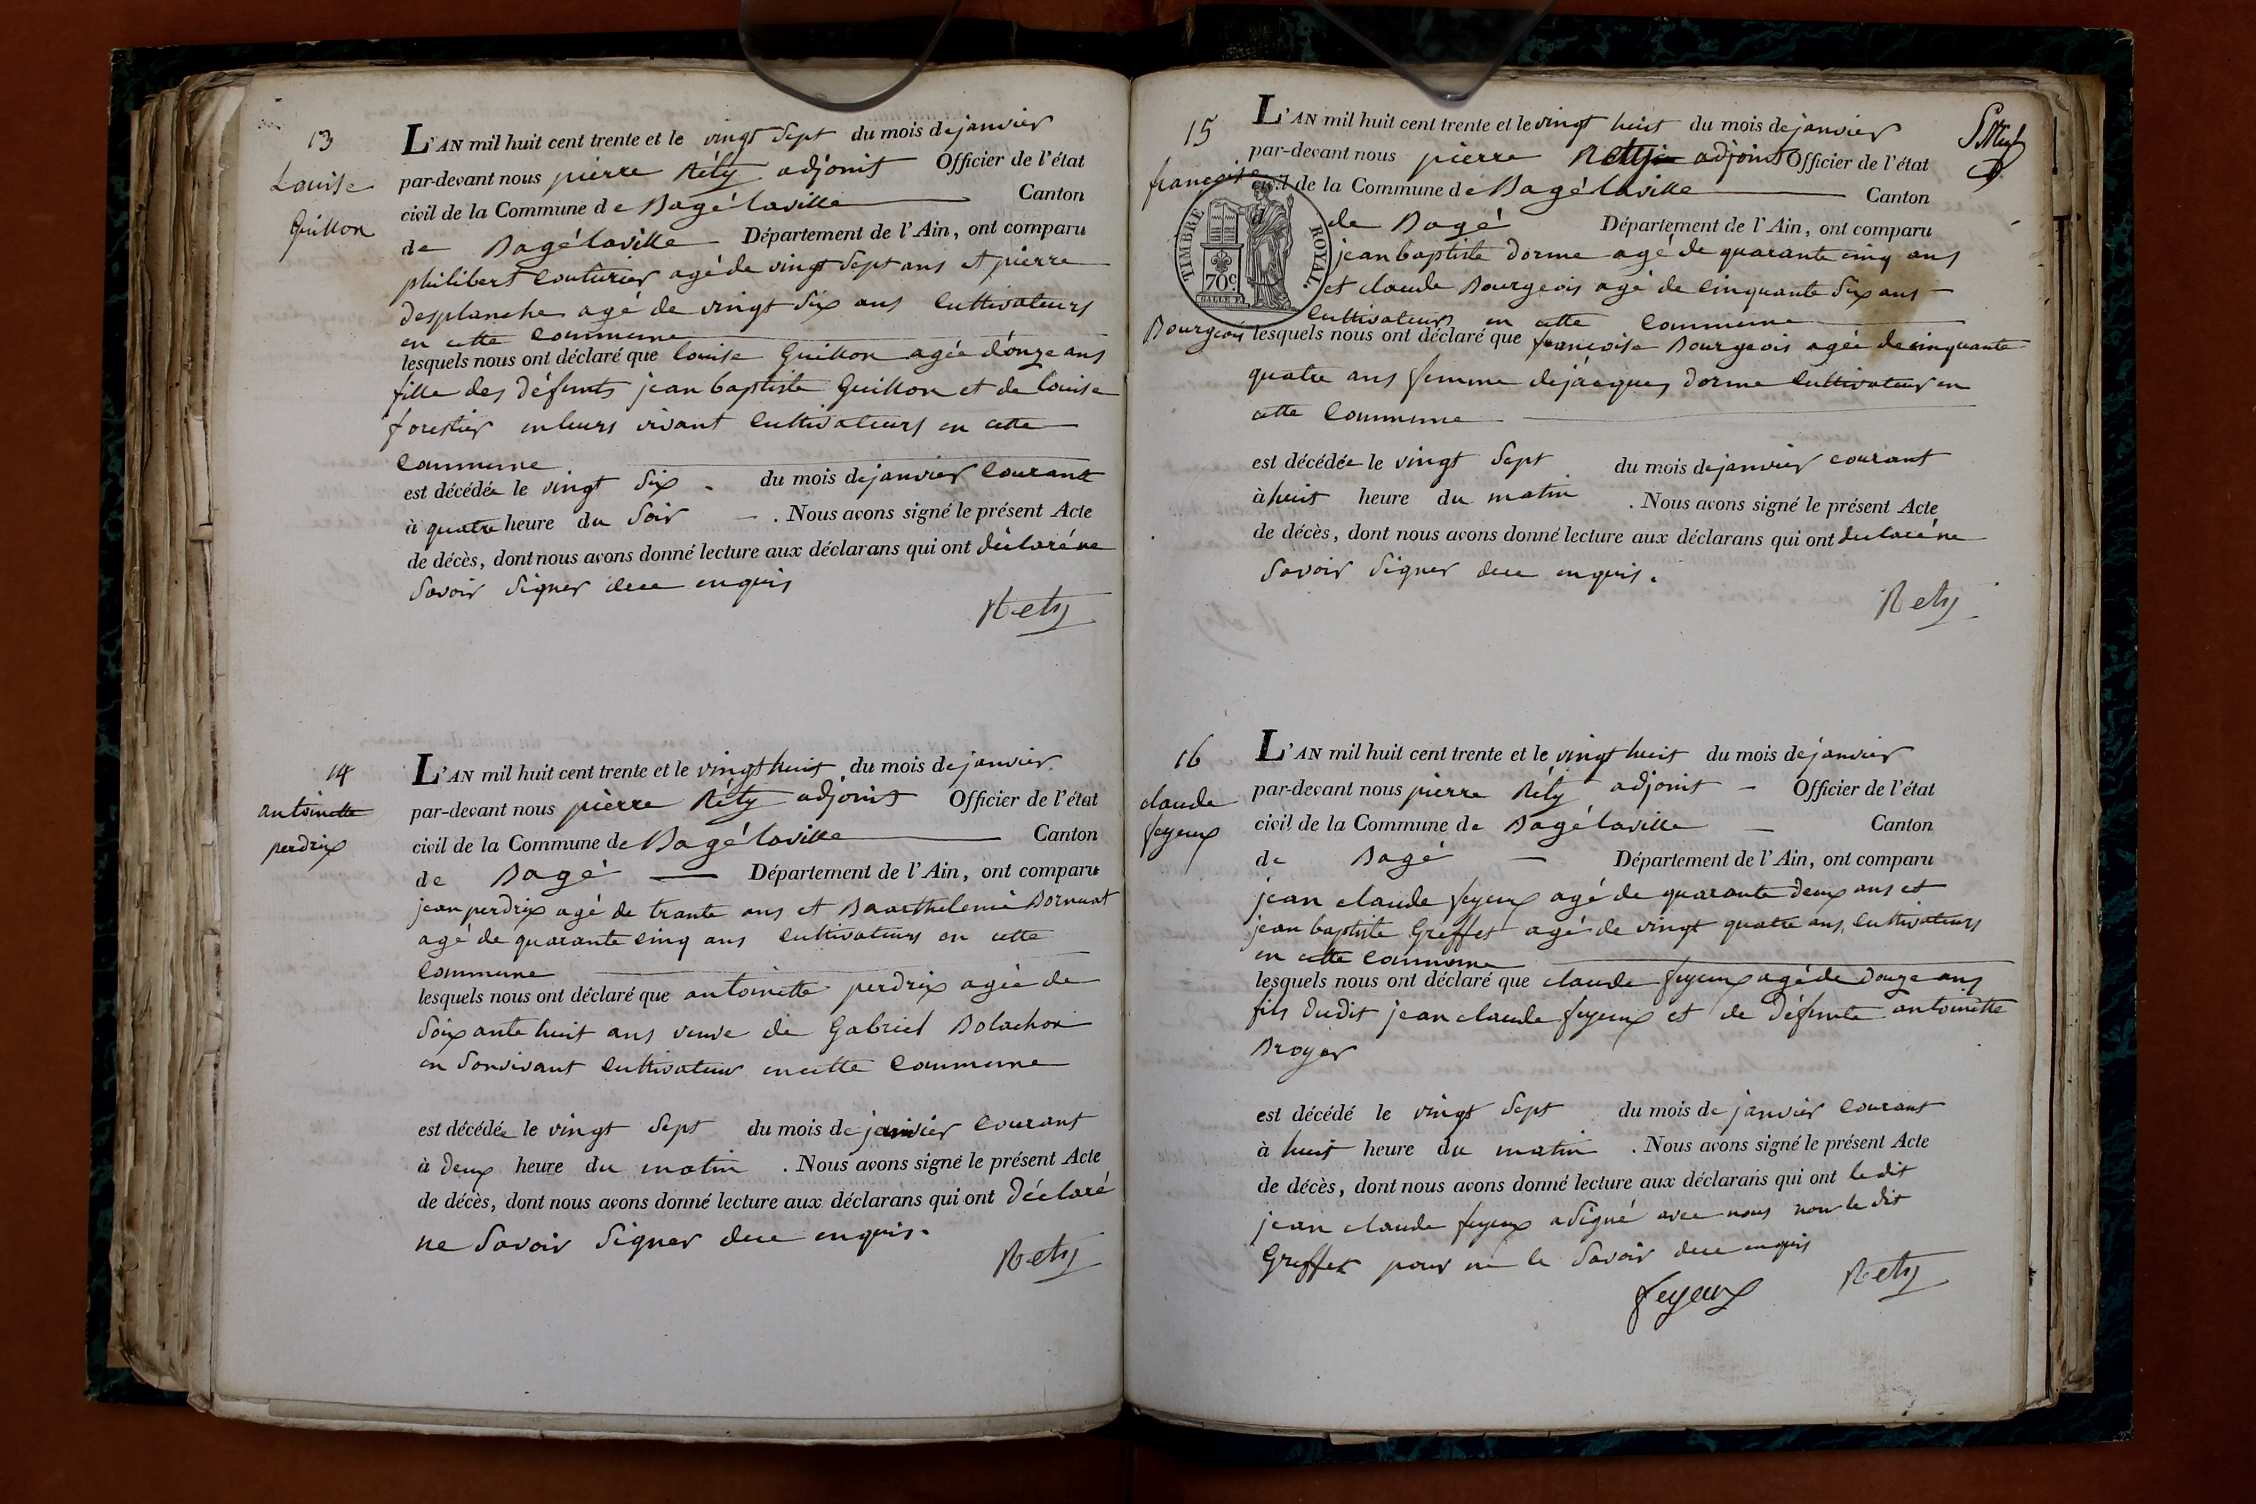 13
Louise
Guillon
L'AN mil huit cent trente et le vingt Sept du mois de janvier
par-devant nous pierre Réty adjoint Officier de l'état
civil de la Commune de Bagé laville Canton
de Bagé laville Département de l'Ain, ont comparu
philibert Couturier agé de vingt Sept ans et pierre
desplanche agé de vingt Six ans Cultivateurs
en cette Commune
lesquels nous ont déclaré que louise Guillon agée d'onze ans
fille des défunts jean baptiste Guillon et de louise
forestier en leurs vivant Cultivateurs en cette
Commune
est décédée le vingt Six du mois de janvier Courant
à quatre heure du Soir . Nous avons signé le présent Acte
de décès, dont nous avons donné lecture aux déclarans qui ont déclaré ne
Savoir Signer dece enquis
Rety
14
antoinette
perdrix
L'AN mil huit cent trente et le vingt huit du mois de janvier
par-devant nous pierre Réty adjoint Officier de l'état
civil de la Commune de Bagé laville Canton
de Bagé Département de l'Ain, ont comparu
jean perdrix agé de trante ans et Baarthelemie Bornuat
agé de quarante Cinq ans Cultivateurs en cette
Commune
lesquels nous ont déclaré que antoinette perdrix agée de
Soixante huit ans veuve de Gabriel Bolachon
en Sonvivant Cultivateur en cette Commune
est décédée le vingt Sept du mois de janvier Courant
à deux heure du matin . Nous avons signé le présent Acte
de décès, dont nous avons donné lecture aux déclarans qui ont déclaré
ne Savoir Signer dece enquis.
Rety
15
francoise
Bourgeois
L'AN mil huit cent trente et le vingt huit du mois de janvier
par-devant nous pierre Rety adjoint Officier de l'état
civil de la Commune de Bagé laville Canton
de Bagé Département de l'Ain, ont comparu
TIMBRE ROYAL.
70c.
jean baptiste dorme agé de quarante cinq ans
et claude Bourgeois agé de Cinquante Six ans
Cultivateurs en cette Commune
lesquels nous ont déclaré que francoise Bourgeois agée de cinquante
quatre ans femme de jacques dorme Cultivateur en
cette Commune
est décédée le vingt Sept du mois de janvier courant
à huit heure du matin . Nous avons signé le présent Acte
de décès, dont nous avons donné lecture aux déclarans qui ont declaré ne
Savoir Signer dece enquis.
Rety
16
claude
feyeux
L'AN mil huit cent trente et le vingt huit du mois de janvier
par-devant nous pierre Réty adjoint Officier de l'état
civil de la Commune de Bagé laville Canton
de Bagé Département de l'Ain, ont comparu
jean claude feyeux agé de quarante deux ans et
jean baptiste Greffet agé de vingt quatre ans, Cultivateurs
en cette Commune
lesquels nous ont déclaré que claude feyeux agé de douze ans
fils dudit jean claude feyeux et de défunte antoinette
Broyer
est décédé le vingt Sept du mois de janvier Courant
à huit heure du matin . Nous avons signé le présent Acte
de décès, dont nous avons donné lecture aux déclarans qui ont le dit
jean claude feyeux a Signé avec nous non le dit
Greffet pour ne le Savoir dece enquis
feyeux Rety